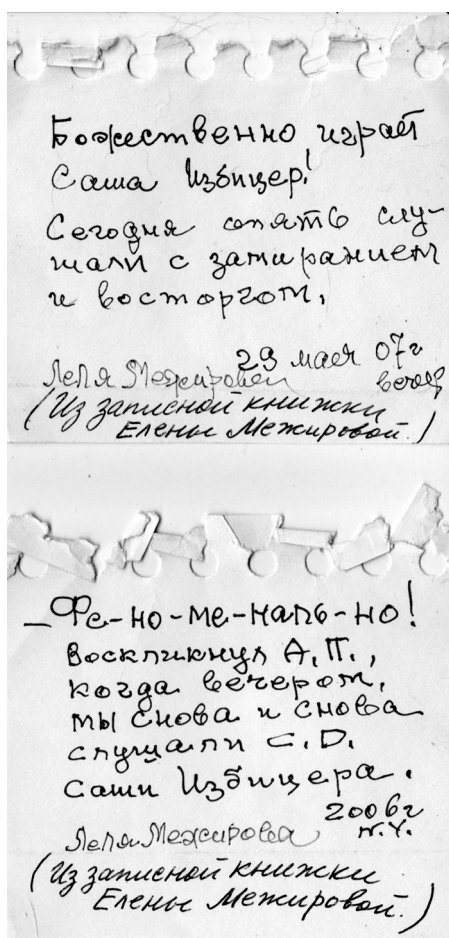 Божественно играет
Саша Избицер!
Сегодня опять слу-
шали с замиранием
и восторгом.
29 мая 07г
Леля Межирова вечер
(Из записной книжки
Елены Межировой.)
— Фе-но-ме-наль-но!
Воскликнул А.П.,
когда вечером,
мы снова и снова
слушали C.D.
Саши Избицера.
2006г
Леля Межирова N.Y.
(Из записной книжки
Елены Межировой.)